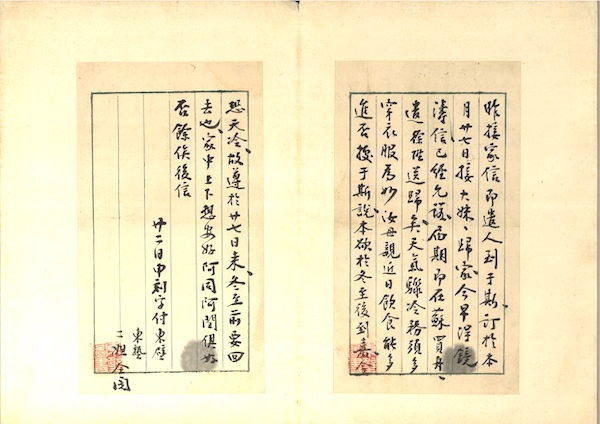 昨接家信即遣人到于斯訂於本
月廿七日接大妹、歸家今早得鏡
濤信已經允諾屆期即在蘇買舟、
遣 送歸矣天氣驟冷務須多
穿衣服為妙汝母親近日飲食能多
進否據于斯說本欲於冬至後到嘉今
恐天冷故遵於廿七日来冬至前要回
去也家中上下想安好阿同阿閏俱好
否餘俟後信
廿二日申刻字付東壁
東藝
二 仝閱